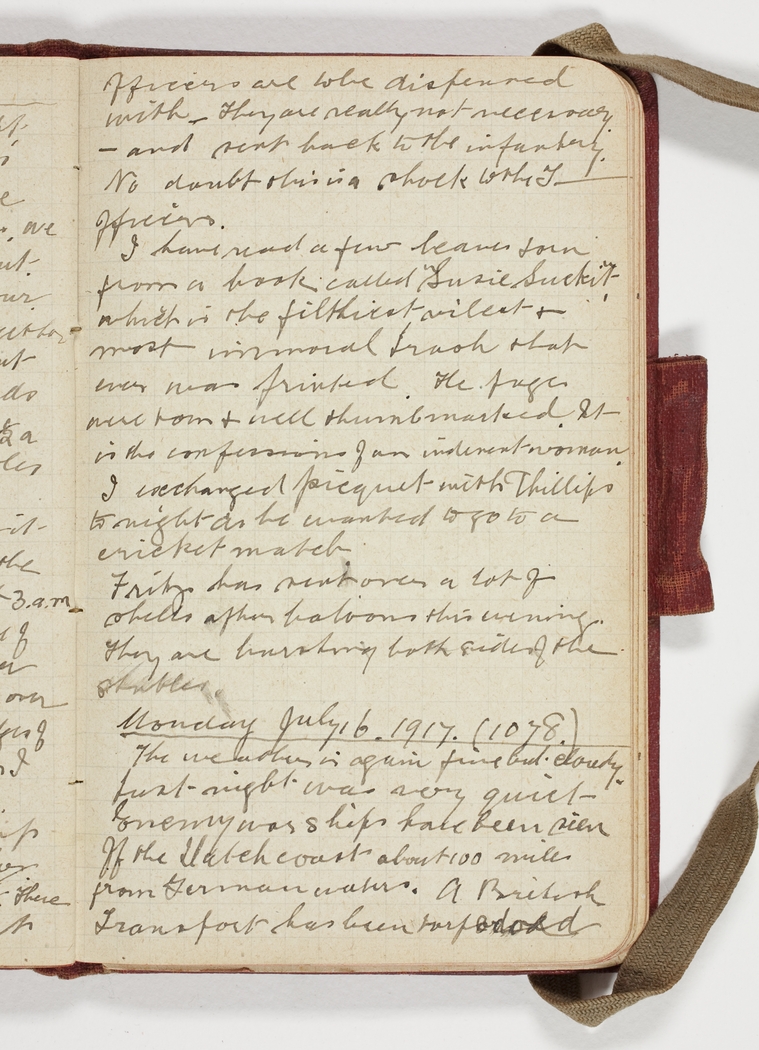 Officers are to be dispensed
with – they are really not necessary
– and sent back to the infantry.
No doubt this is a shock to the I—
Officers.
I have read a few leaves torn
from a book called "Susie Suckit"
which is the filthiest, vilest &
most immoral trash that
ever was printed. The pages
were torn & well thumbmarked. It
is the confessions of an indecent woman.
I exchanged picquet with Phillips
to night as he wanted to go to a
cricket match.
Fritz has sent over a lot of
shells after baloons this evening.
They are bursting both sides of the
stables.
Monday July 16. 1917. (1078.)
The weather is again fine but cloudy.
Last night was very quiet
Enemy war ships have been seen
Off the Dutch coast about 100 miles
from German waters. A British
Transport has been torpedoed
ve
out
our
do
½ a
the
3.a.m
of
over
I
There